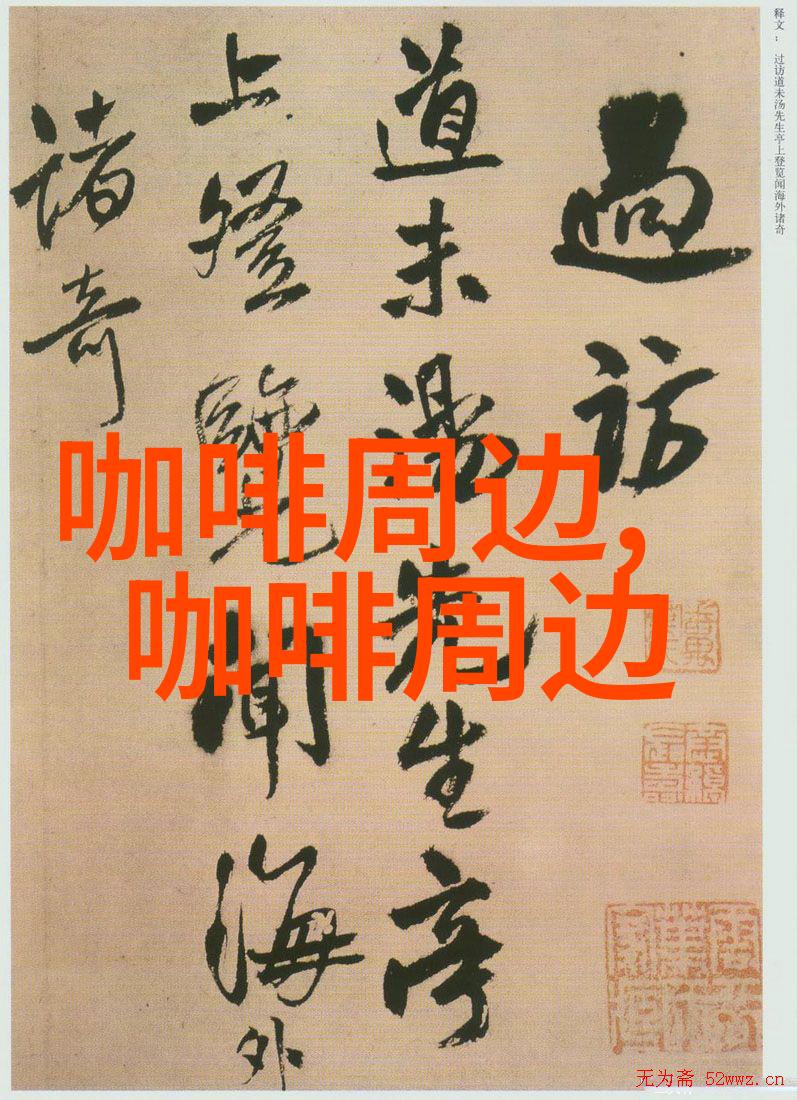 释文： 过访道未汤先生亭上登览闻海外诸奇
過訪
道未湯先生亭
上登覽聞海外
諸奇
咖啡周边,
咖啡周边
无为斋 52wwz.cn